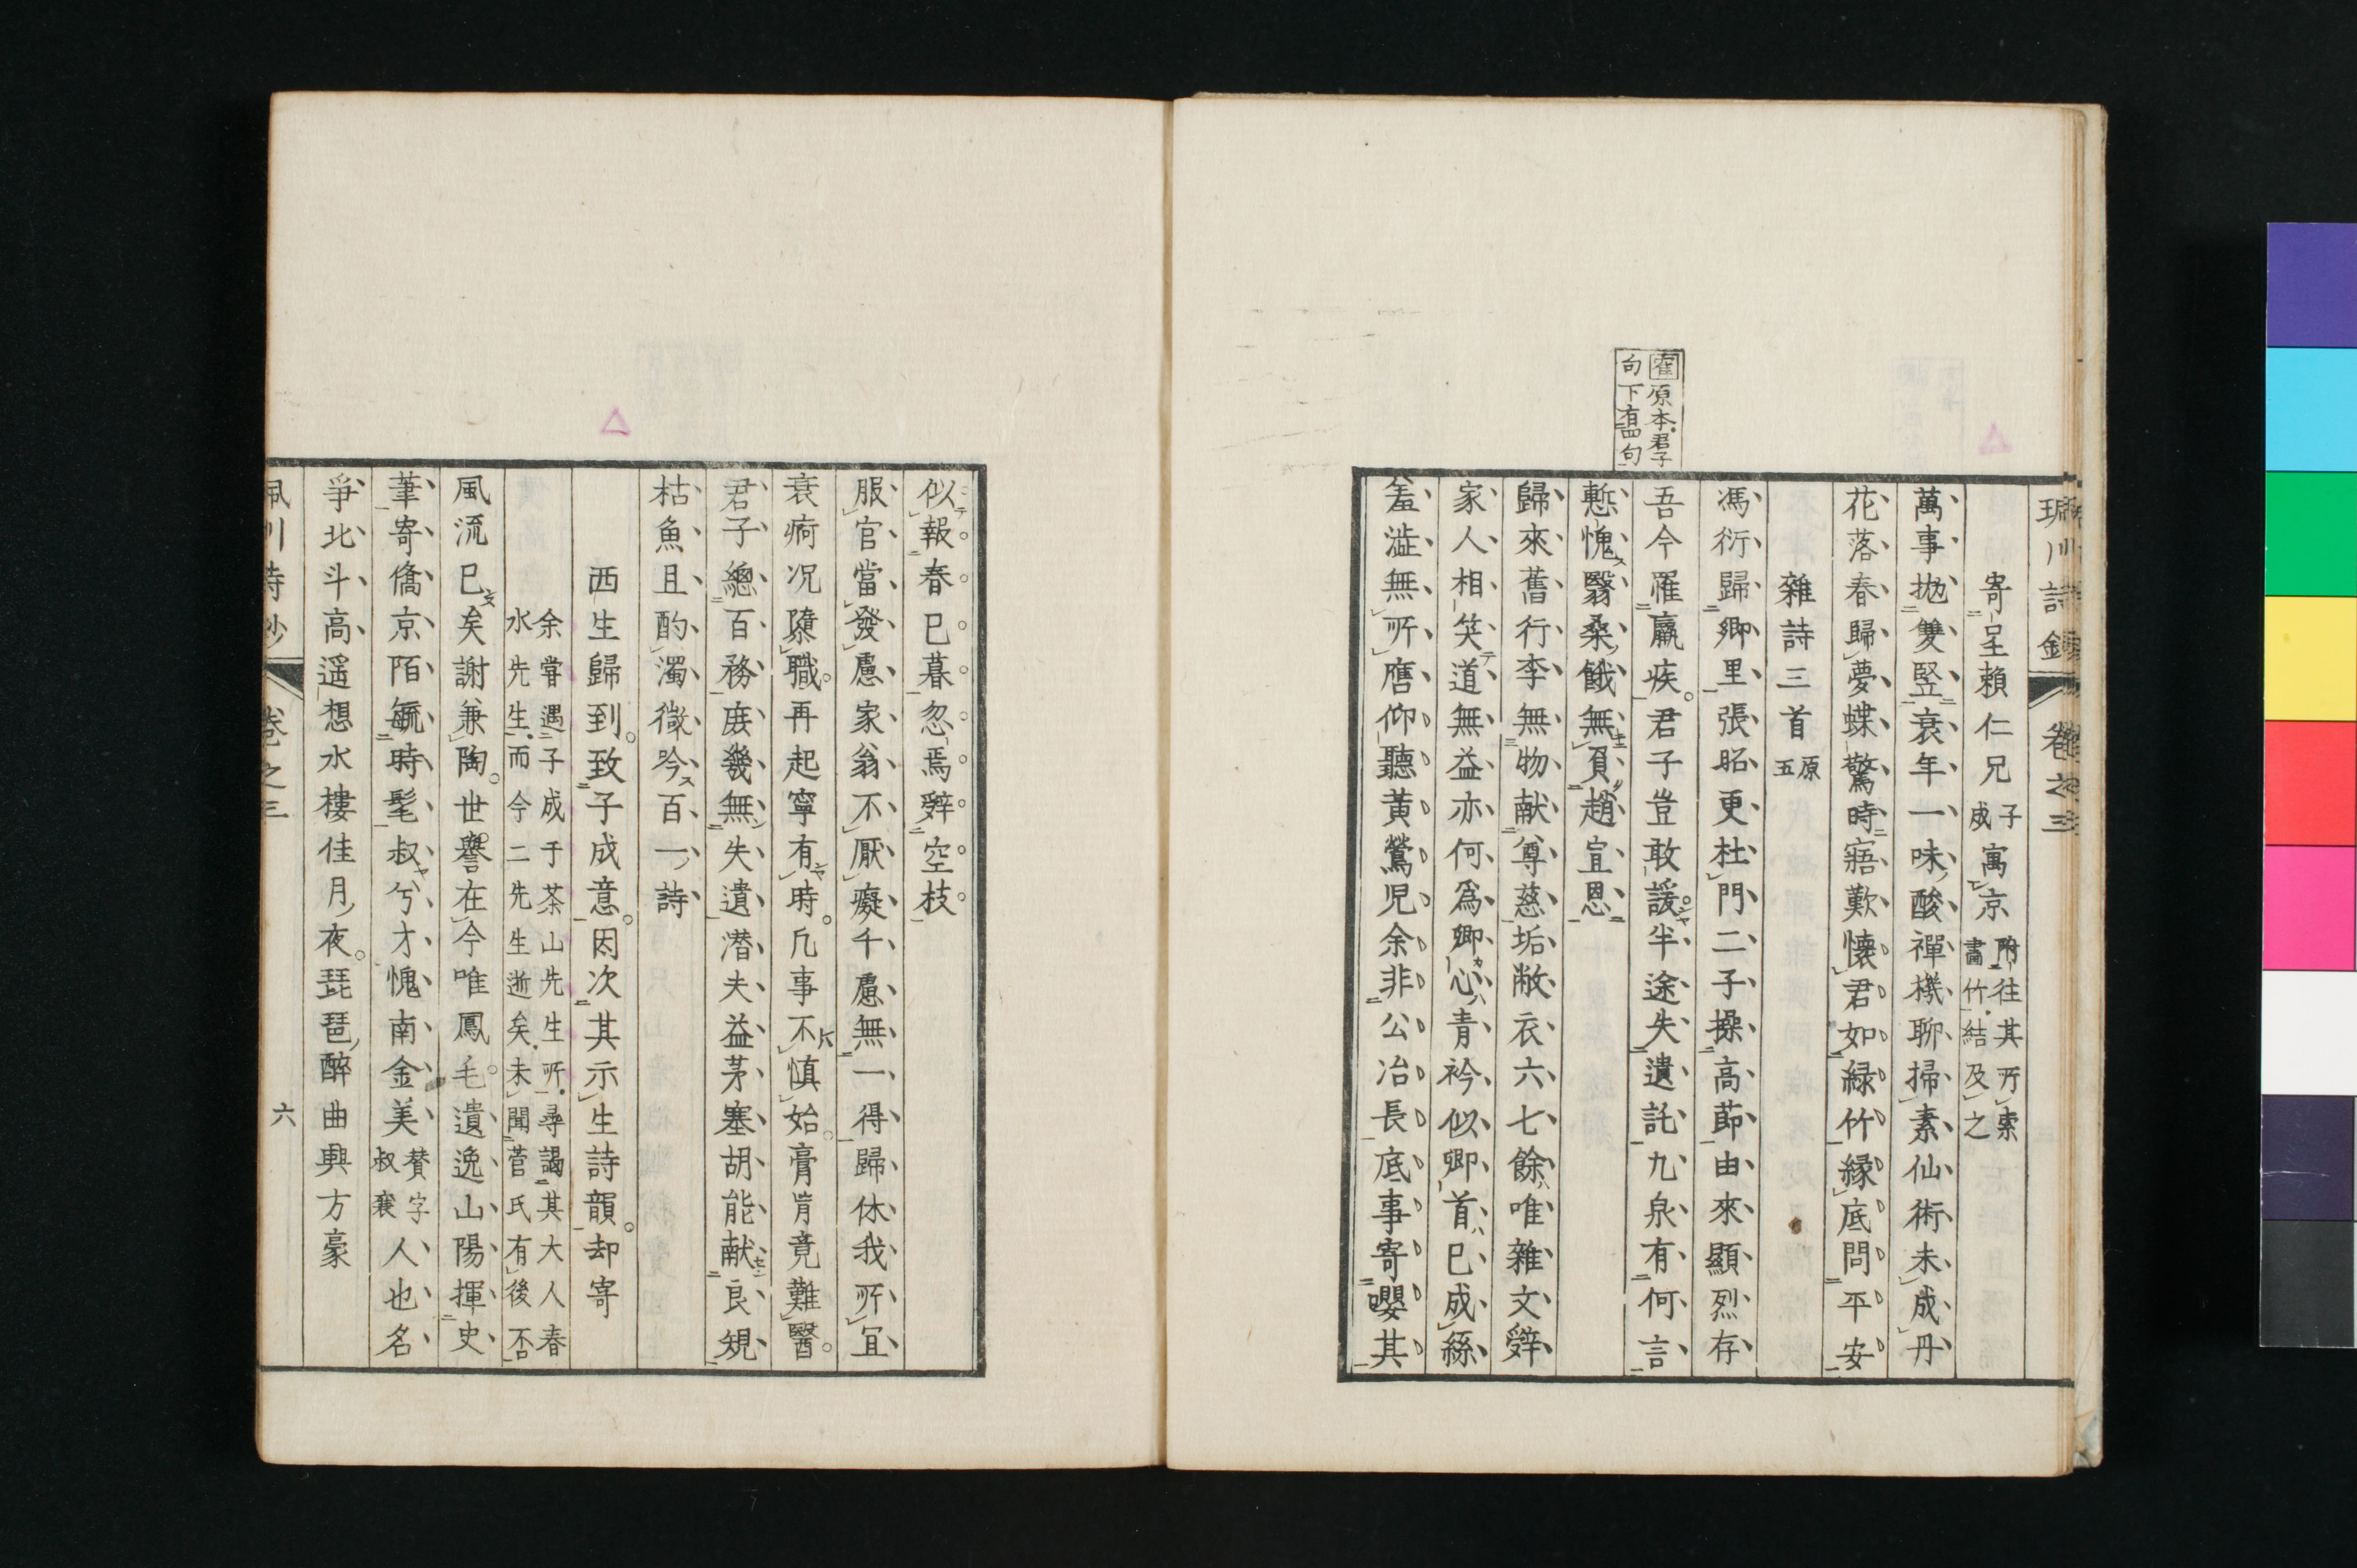 寄呈賴仁兄子成寓京附往其所索書竹結及之
萬事拋雙竪衰年一味酸禪機聊掃素仙術未成丹
花落春歸夢蝶驚時寤歎懷君如緑竹縁底問平安
雜詩三首原五
馮衍歸卿里張昭更杜門二子操高莭由來顯烈存
吾今罹羸疾君子豈敢諼半途失遺託九泉有何言
慙愧翳桑餓無負趙宣恩
歸來舊行李無物献尊慈垢敝衣六七餘唯雜文辤
家人相笑道無益亦何爲卿心青衿似卿首已成絲
羞澁無所譍仰聽黃鶯児余非公冶長底事寄嚶其
原本君子
句下有四句
卷之三
似報春已暮忽焉辤空枝
服官當發慮家翁不厭癡千慮無一得歸休我所宜
衰痾况隳職再起寧有時凡事不慎始膏肓竟難醫
君子總百務庻幾無失遺潜夫益茅塞胡能献良規
枯魚且酌濁徵吟百一詩
西生歸到致子成意因次其示生詩韻却寄
余嘗遇子成于茶山先生所尋謁其大人春
水先生而今二先生逝矣未聞菅氏有後否
風流已矣謝兼陶世譽在今唯鳳毛遺逸山陽揮史
筆寄僑京陌毓時髦叔兮才愧南金美賛字叔襄人也名
爭北斗高遥想水樓佳月夜琵琶醉曲興方豪
卷之三
六